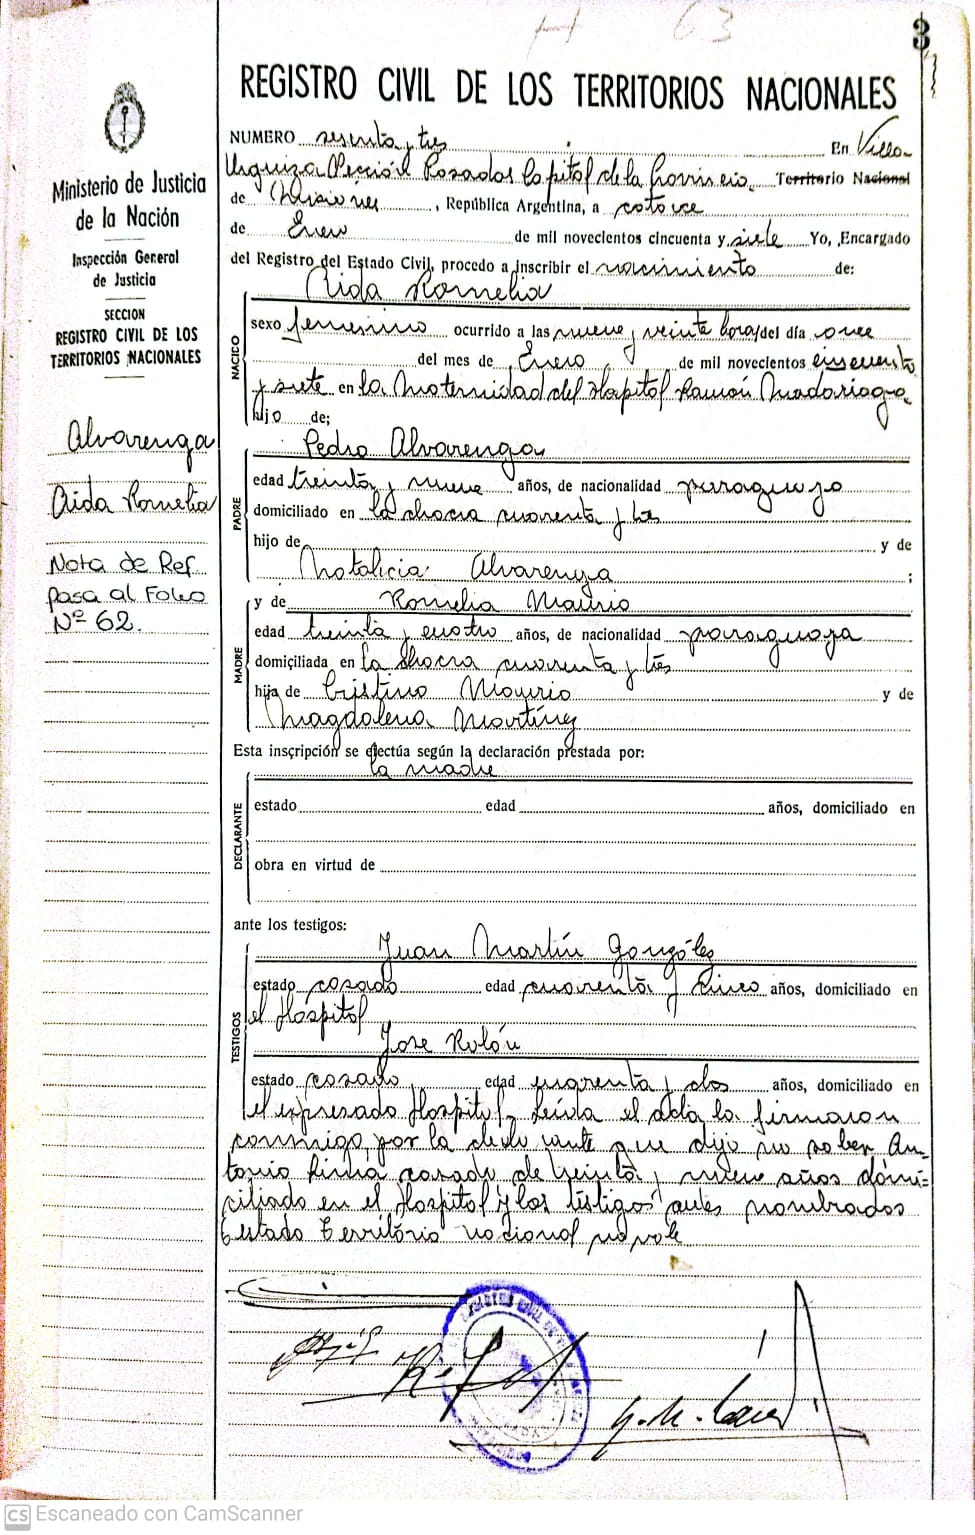 H 63
3
REGISTRO CIVIL DE LOS TERRITORIOS NACIONALES
NUMERO sesenta y tres En Villa
Urquiza Sección Posadas Capital de la Provincia Territorio Nacional
de Misiones, República Argentina, a catorce
de Enero de mil novecientos cincuenta y siete Yo, Encargado
del Registro del Estado Civil, procedo a inscribir el nacimiento de:
Aida Romelia
NACIDO
sexo femenino ocurrido a las nueve y veinte horas del día once
del mes de Enero de mil novecientos cincuenta
y siete en la Maternidad del Hospital Ramón Madariaga
hijo de;
Pedro Alvarenga
PADRE
edad treinta y nueve años, de nacionalidad paraguayo
domiciliado en la chacra cuarenta y tres
hijo de y de
Natalicia Alvarenga ;
y de Romelia Maurio
MADRE
edad treinta y cuatro años, de nacionalidad paraguaya
domiciliada en la chacra cuarenta y tres
hija de Cristino Maurio y de
Magdalena Martínez
Esta inscripción se efectúa según la declaración prestada por:
la madre
DECLARANTE
estado edad años, domiciliado en
obra en virtud de
ante los testigos:
Juan Martín González
TESTIGOS
estado casado edad cuarenta y cinco años, domiciliado en
el Hospital
Jose Rolón
estado casado, edad cuarenta y dos años, domiciliado en
el expresado Hospital. Leída el acta la firmaron
conmigo por la declarante que dijo no saber An-
tonio casado de treinta y nueve años domi=
ciliado en el Hospital y los testigos antes nombrados
Estado Territorio nacional no vale
Ministerio de Justicia
de la Nación
Inspección General
de Justicia
SECCION
REGISTRO CIVIL DE LOS
TERRITORIOS NACIONALES
Alvarenga
Aida Romelia
Nota de Ref
pasa al Folio
Nº 62.
CS Escaneado con CamScanner